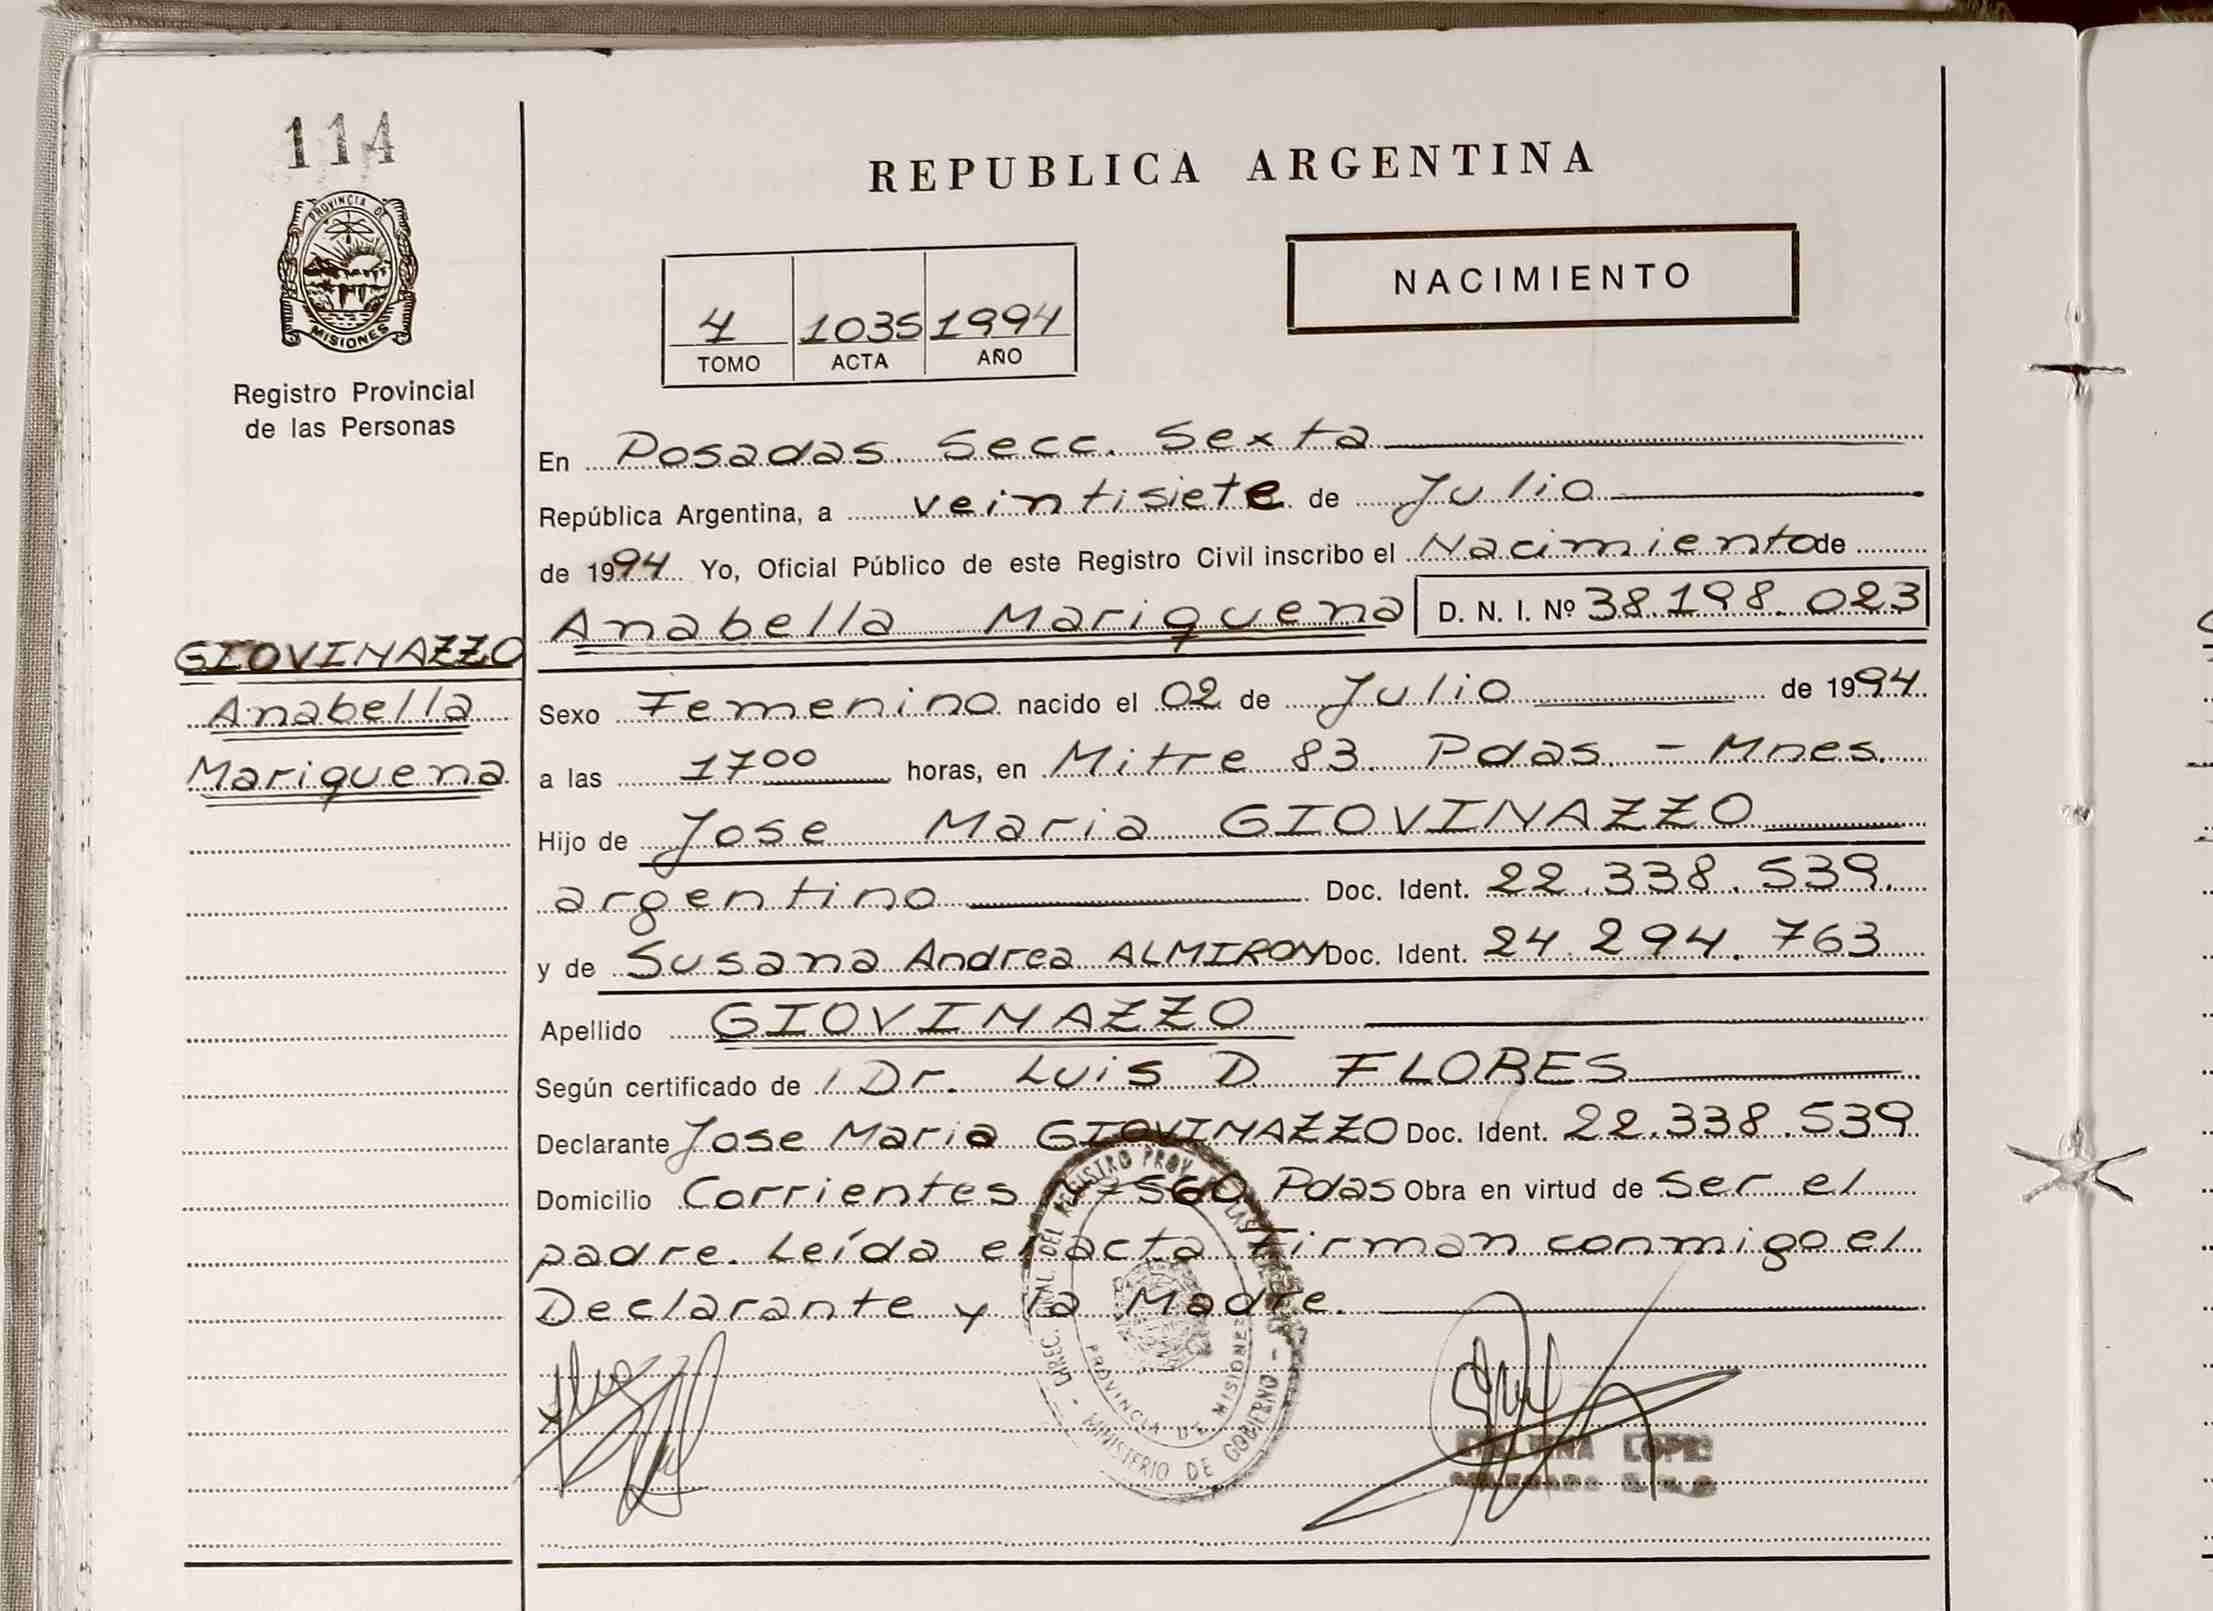 114
PROVINCIA DE
MISIONES
Registro Provincial
de las Personas
REPUBLICA ARGENTINA
NACIMIENTO
4 1035 1994
TOMO ACTA AÑO
En Posadas. Secc. Sexta
República Argentina, a veintisiete de Julio
de 1994 Yo, Oficial Público de este Registro Civil inscribo el Nacimiento de
Anabella Mariquena D. N. I. Nº 38.198.023
GIOVINAZZO
Anabella
Mariquena
Sexo Femenino nacido el 02 de Julio de 1994
a las 17⁰⁰ horas, en Mitre 83. Pdas. - Mnes.
Hijo de Jose Maria GIOVINAZZO
argentino Doc. Ident. 22.338.539.
y de Susana Andrea ALMIRON Doc. Ident. 24.294.763
Apellido GIOVINAZZO
Según certificado de Dr. Luis D. FLORES
Declarante Jose Maria GIOVINAZZO Doc. Ident. 22.338.539
Domicilio Corrientes Pdas Obra en virtud de ser el
padre. Leída el acta Firman conmigo el
Declarante y la Madre.
DIREC. GRAL DEL REGISTRO PROV. LAS
MINISTERIO DE GOBIERNO
PROVINCIA DE MISIONES